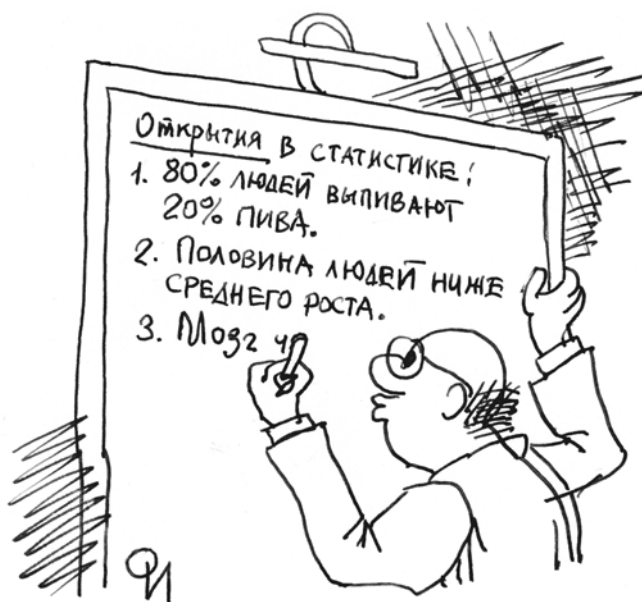 Открытия в статистике!
1. 80% людей выпивают
20% пива.
2. Половина людей ниже
среднего роста.
3. Мозг ч